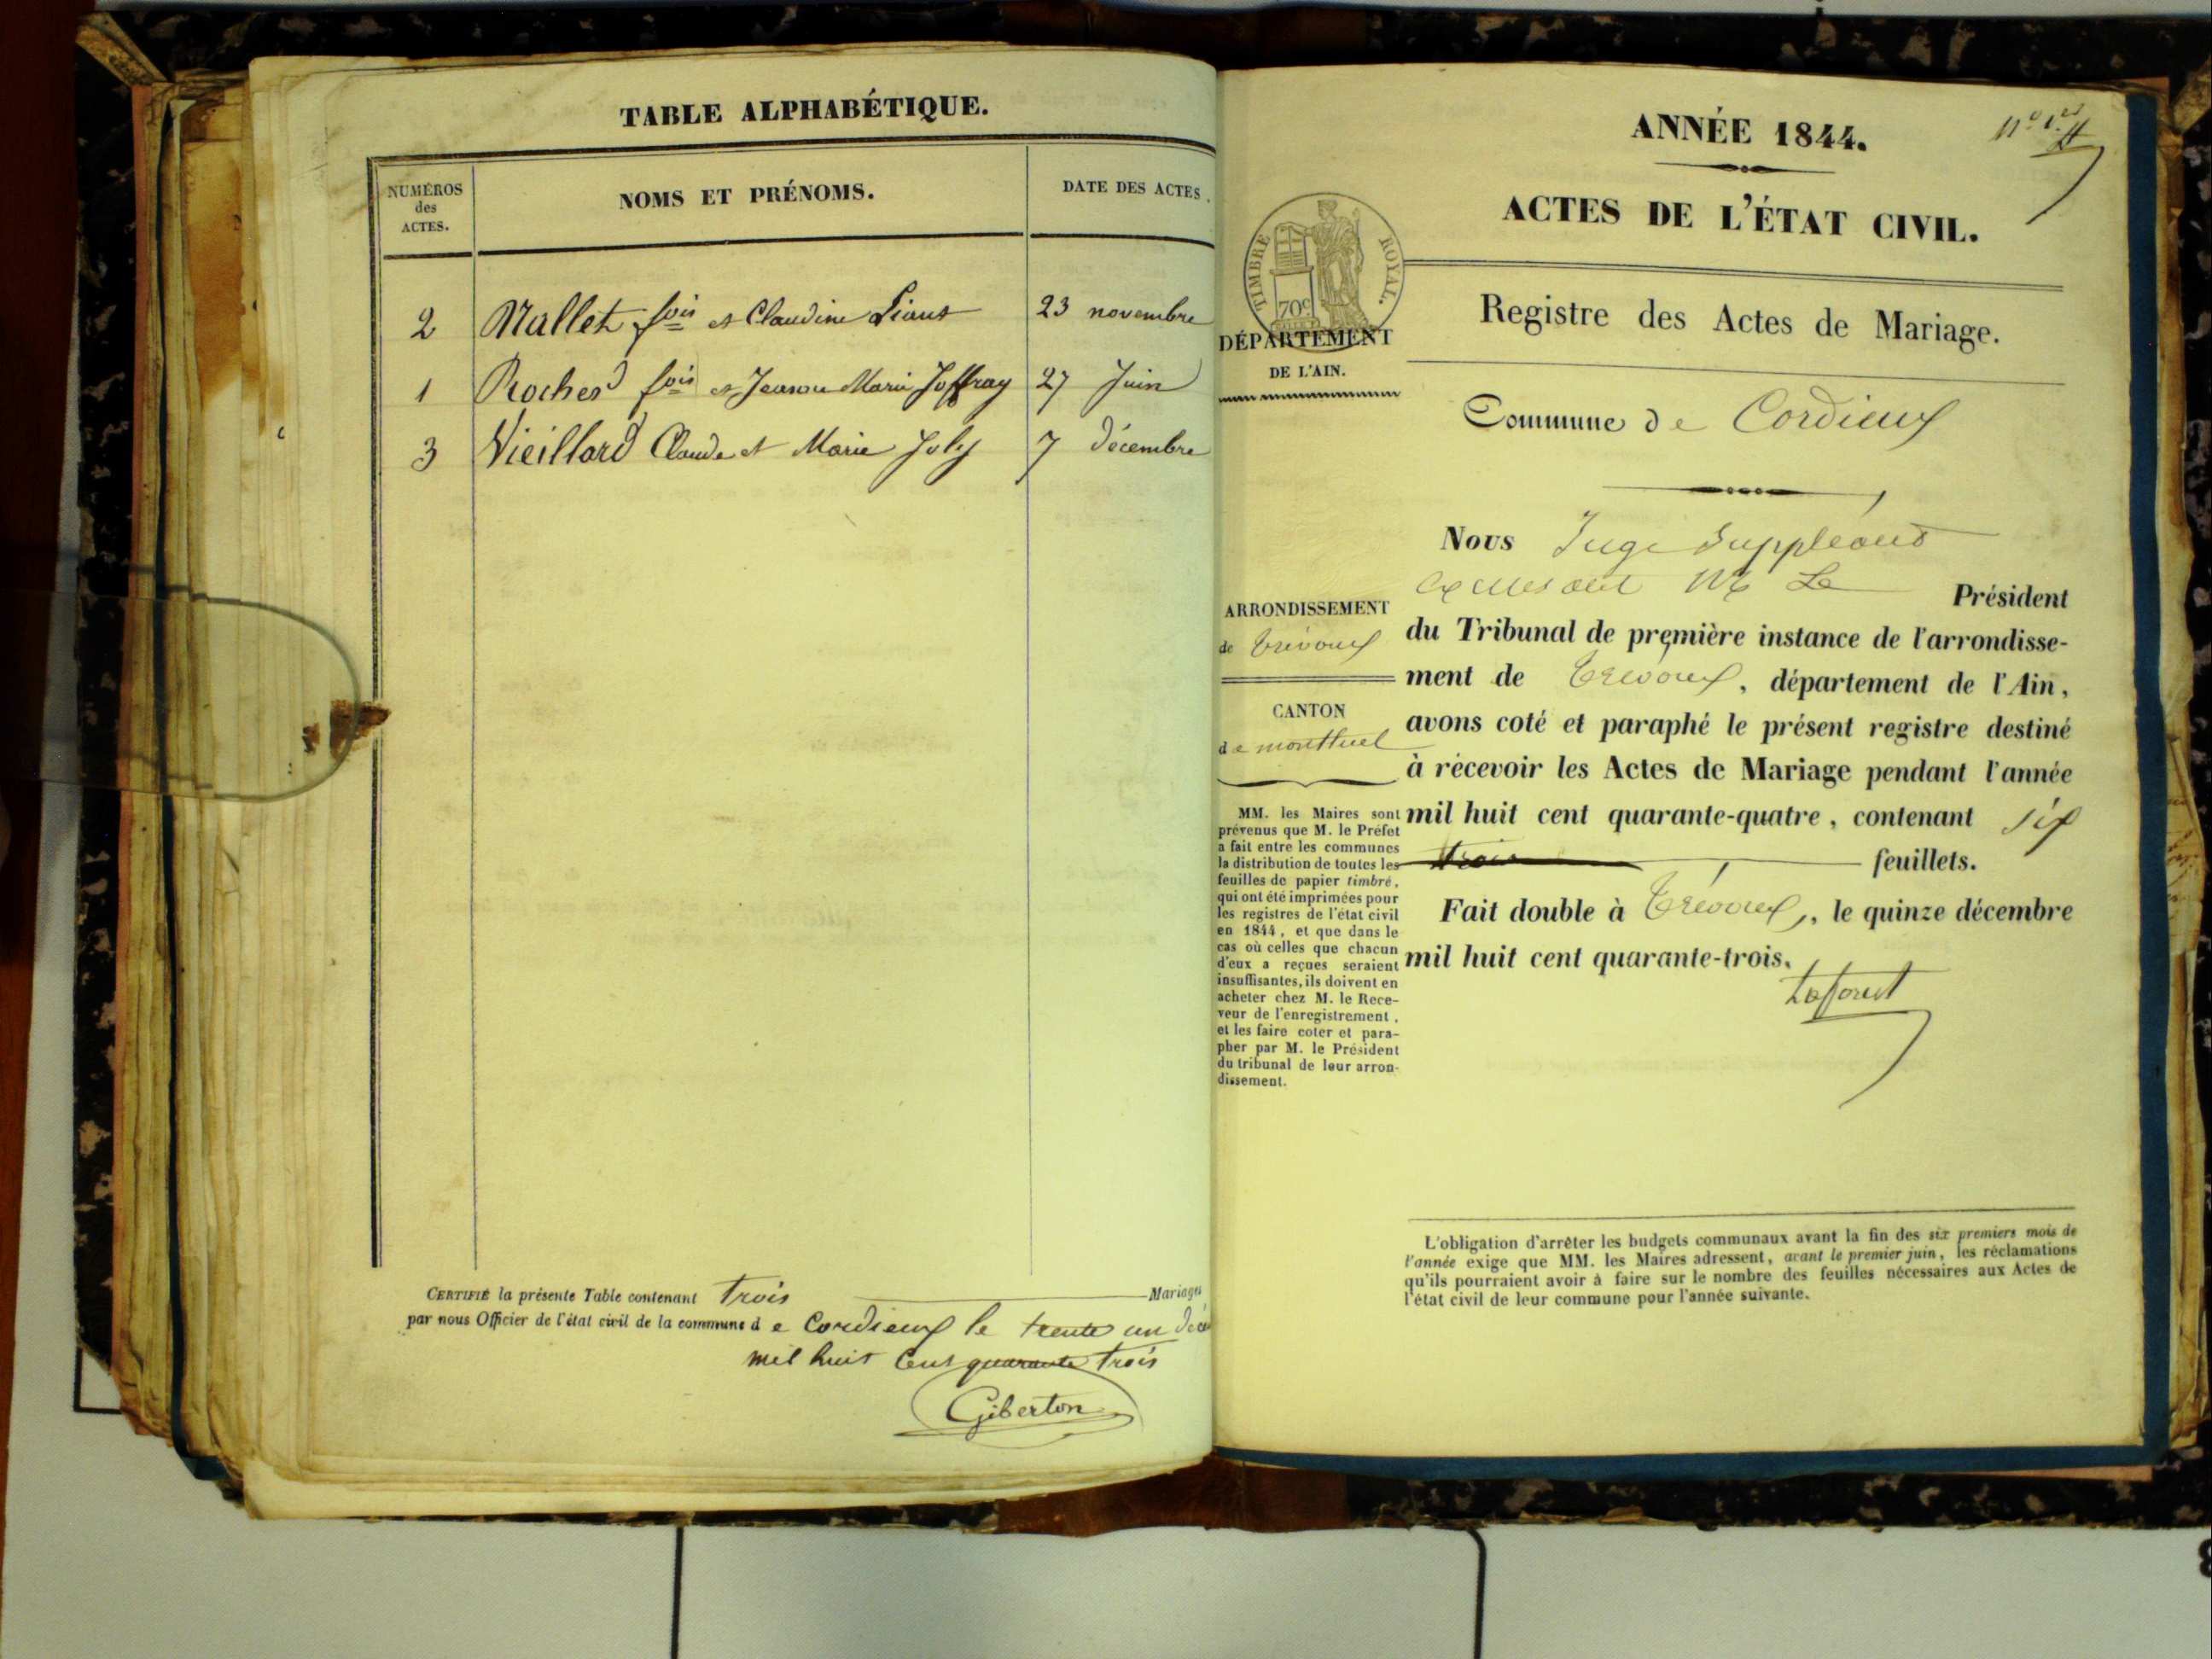 TABLE ALPHABÉTIQUE.
NUMÉROS
des
ACTES.
NOMS ET PRÉNOMS.
DATE DES ACTES.
2 Mallet fois et Claudine Liaus 23 novembre
1 Rocher fois et Jeanne Marie Joffray 27 Juin
3 Vieillard Claude et Marie Joly 7 décembre
CERTIFIÉ la présente Table contenant trois Mariages
par nous Officier de l'état civil de la commune de Cordieux le trente un déce
mil huit cent quarante trois
Giberton
ANNÉE 1844.
ACTES DE L'ÉTAT CIVIL.
TIMBRE ROYAL.
70c
DÉPARTEMENT
DE L'AIN.
Registre des Actes de Mariage.
Commune de Cordieux
ARRONDISSEMENT
de Trévoux
CANTON
de montluel
MM. les Maires sont
prévenus que M. le Préfet
a fait entre les communes
la distribution de toutes les
feuilles de papier timbré,
qui ont été imprimées pour
les registres de l'état civil
en 1844, et que dans le
cas où celles que chacun
d'eux a reçues seraient
insuffisantes, ils doivent en
acheter chez M. le Rece-
veur de l'enregistrement,
et les faire coter et para-
pher par M. le Président
du tribunal de leur arron-
dissement.
Nous Juge Suppléant
Le Président
du Tribunal de première instance de l'arrondisse-
ment de Trévoux, département de l'Ain,
avons coté et paraphé le présent registre destiné
à recevoir les Actes de Mariage pendant l'année
mil huit cent quarante-quatre, contenant six
trois feuillets.
Fait double à Trévoux, le quinze décembre
mil huit cent quarante-trois.
Laforest
L'obligation d'arrêter les budgets communaux avant la fin des six premiers mois de
l'année exige que MM. les Maires adressent, avant le premier juin, les réclamations
qu'ils pourraient avoir à faire sur le nombre des feuilles nécessaires aux Actes de
l'état civil de leur commune pour l'année suivante.